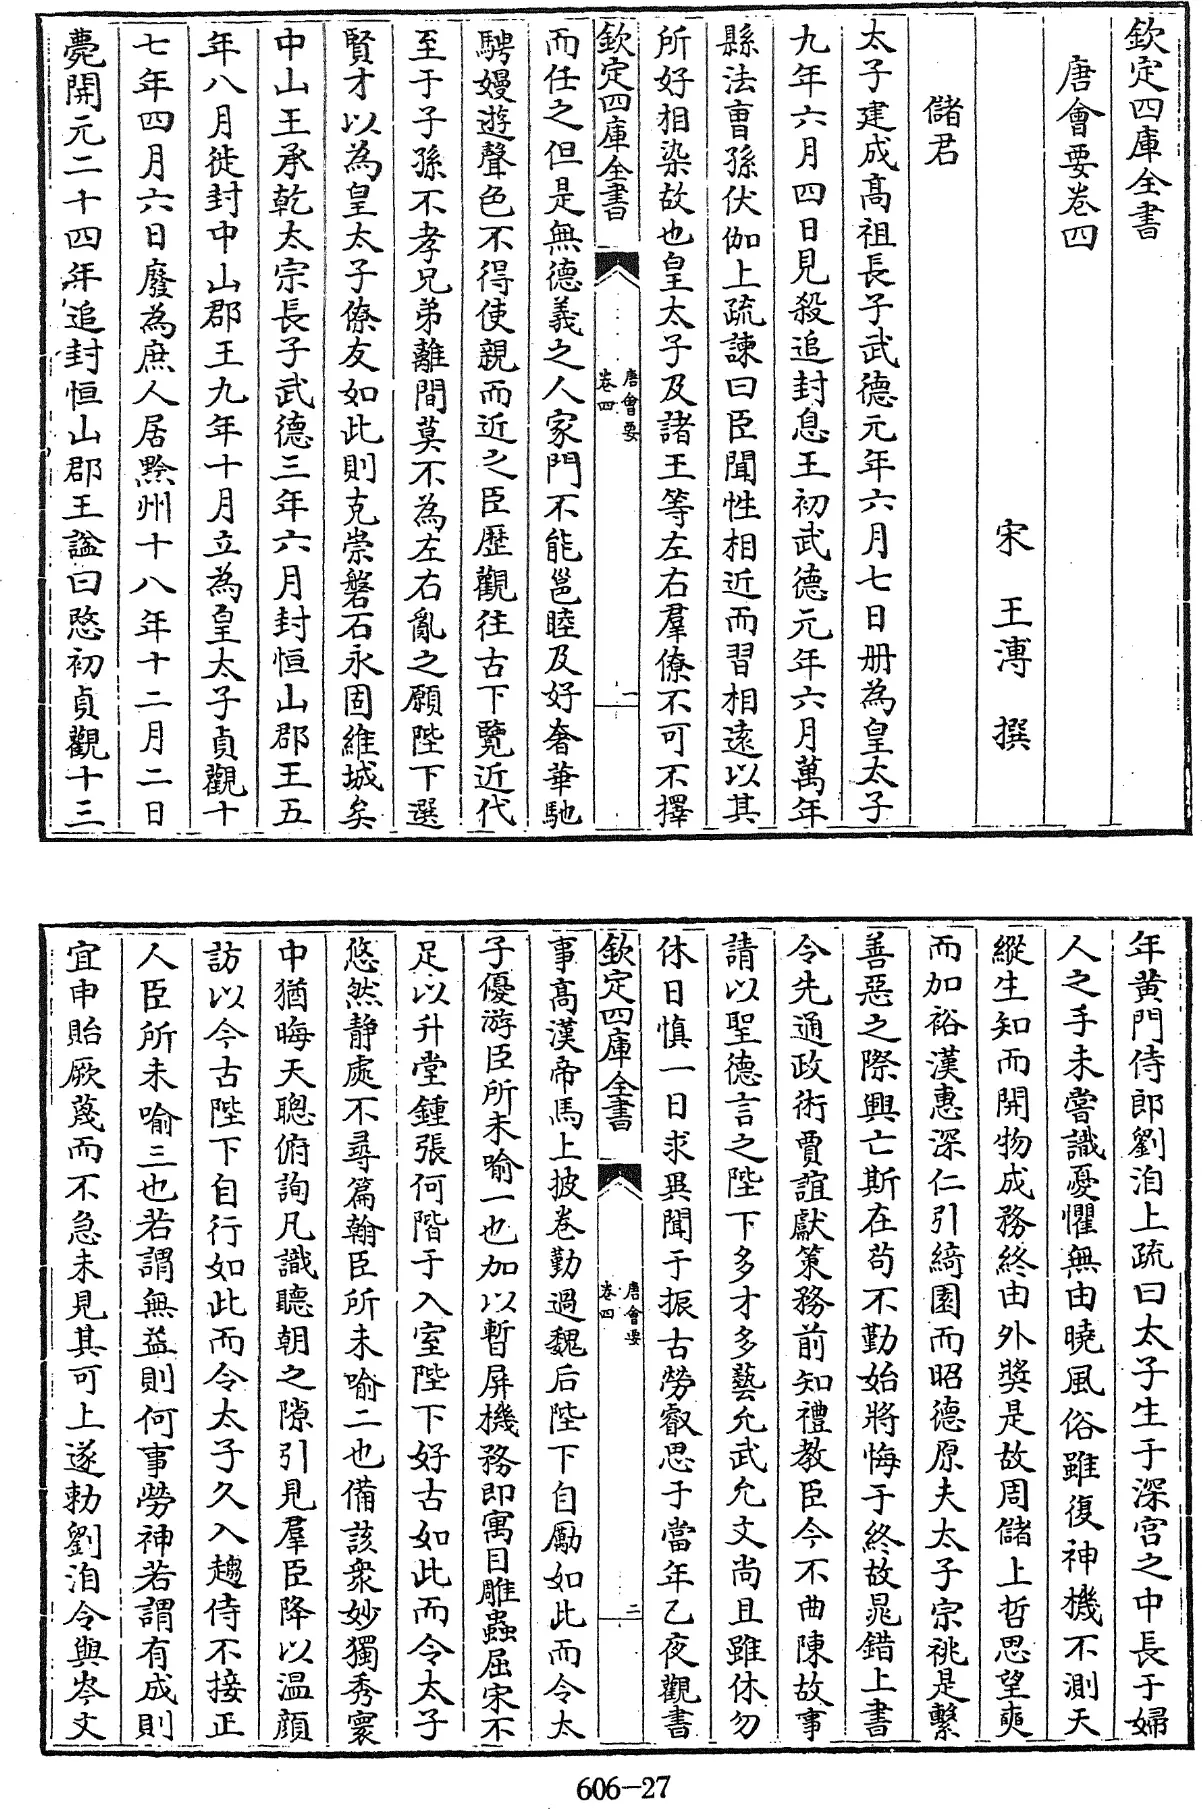 欽定四庫全書
唐會要卷四
宋 王溥 撰
儲君
太子建成高祖長子武德元年六月七日册為皇太子
九年六月四日見殺追封息王初武德元年六月萬年
縣法曹孫伏伽上疏諫曰臣聞性相近而習相遠以其
所好相染故也皇太子及諸王等左右羣僚不可不擇
欽定四庫全書
唐會要
卷四
一
而任之但是無德義之人家門不能邕睦及好奢華馳
騁嫚遊聲色不得使親而近之臣歷觀往古下覽近代
至于子孫不孝兄弟離間莫不為左右亂之願陛下選
賢才以為皇太子僚友如此則克崇磐石永固維城矣
中山王承乾太宗長子武德三年六月封恒山郡王五
年八月徙封中山郡王九年十月立為皇太子貞觀十
七年四月六日廢為庶人居黔州十八年十二月二日
薨開元二十四年追封恒山郡王諡曰愍初貞觀十三
年黃門侍郎劉洎上疏曰太子生于深宫之中長于婦
人之手未嘗識憂懼無由曉風俗雖復神機不測天
縱生知而開物成務終由外奬是故周儲上哲思望奭
而加裕漢惠深仁引綺園而昭德原夫太子宗祧是繫
善惡之際興亡斯在茍不勤始將悔于終故晁錯上書
令先通政術賈誼獻策務前知禮教臣今不曲陳故事
請以聖德言之陛下多才多藝允武允文尚且雖休勿
休日慎一日求異聞于振古勞叡思于當年乙夜觀書
欽定四庫全書
唐會要
卷四
二
事高漢帝馬上披卷勤過魏后陛下自勵如此而令太
子優游臣所未喻一也加以暫屏機務即寓目雕蟲屈宋不
足以升堂鍾張何階于入室陛下好古如此而令太子
悠然静處不尋篇翰臣所未喻二也備該衆妙獨秀寰
中猶晦天聰俯詢凡識聽朝之隙引見羣臣降以温顔
訪以今古陛下自行如此而令太子久入趨侍不接正
人臣所未喻三也若謂無益則何事勞神若謂有成則
宜申貽厥蔑而不急未見其可上遂勅劉洎令與岑文
606-27